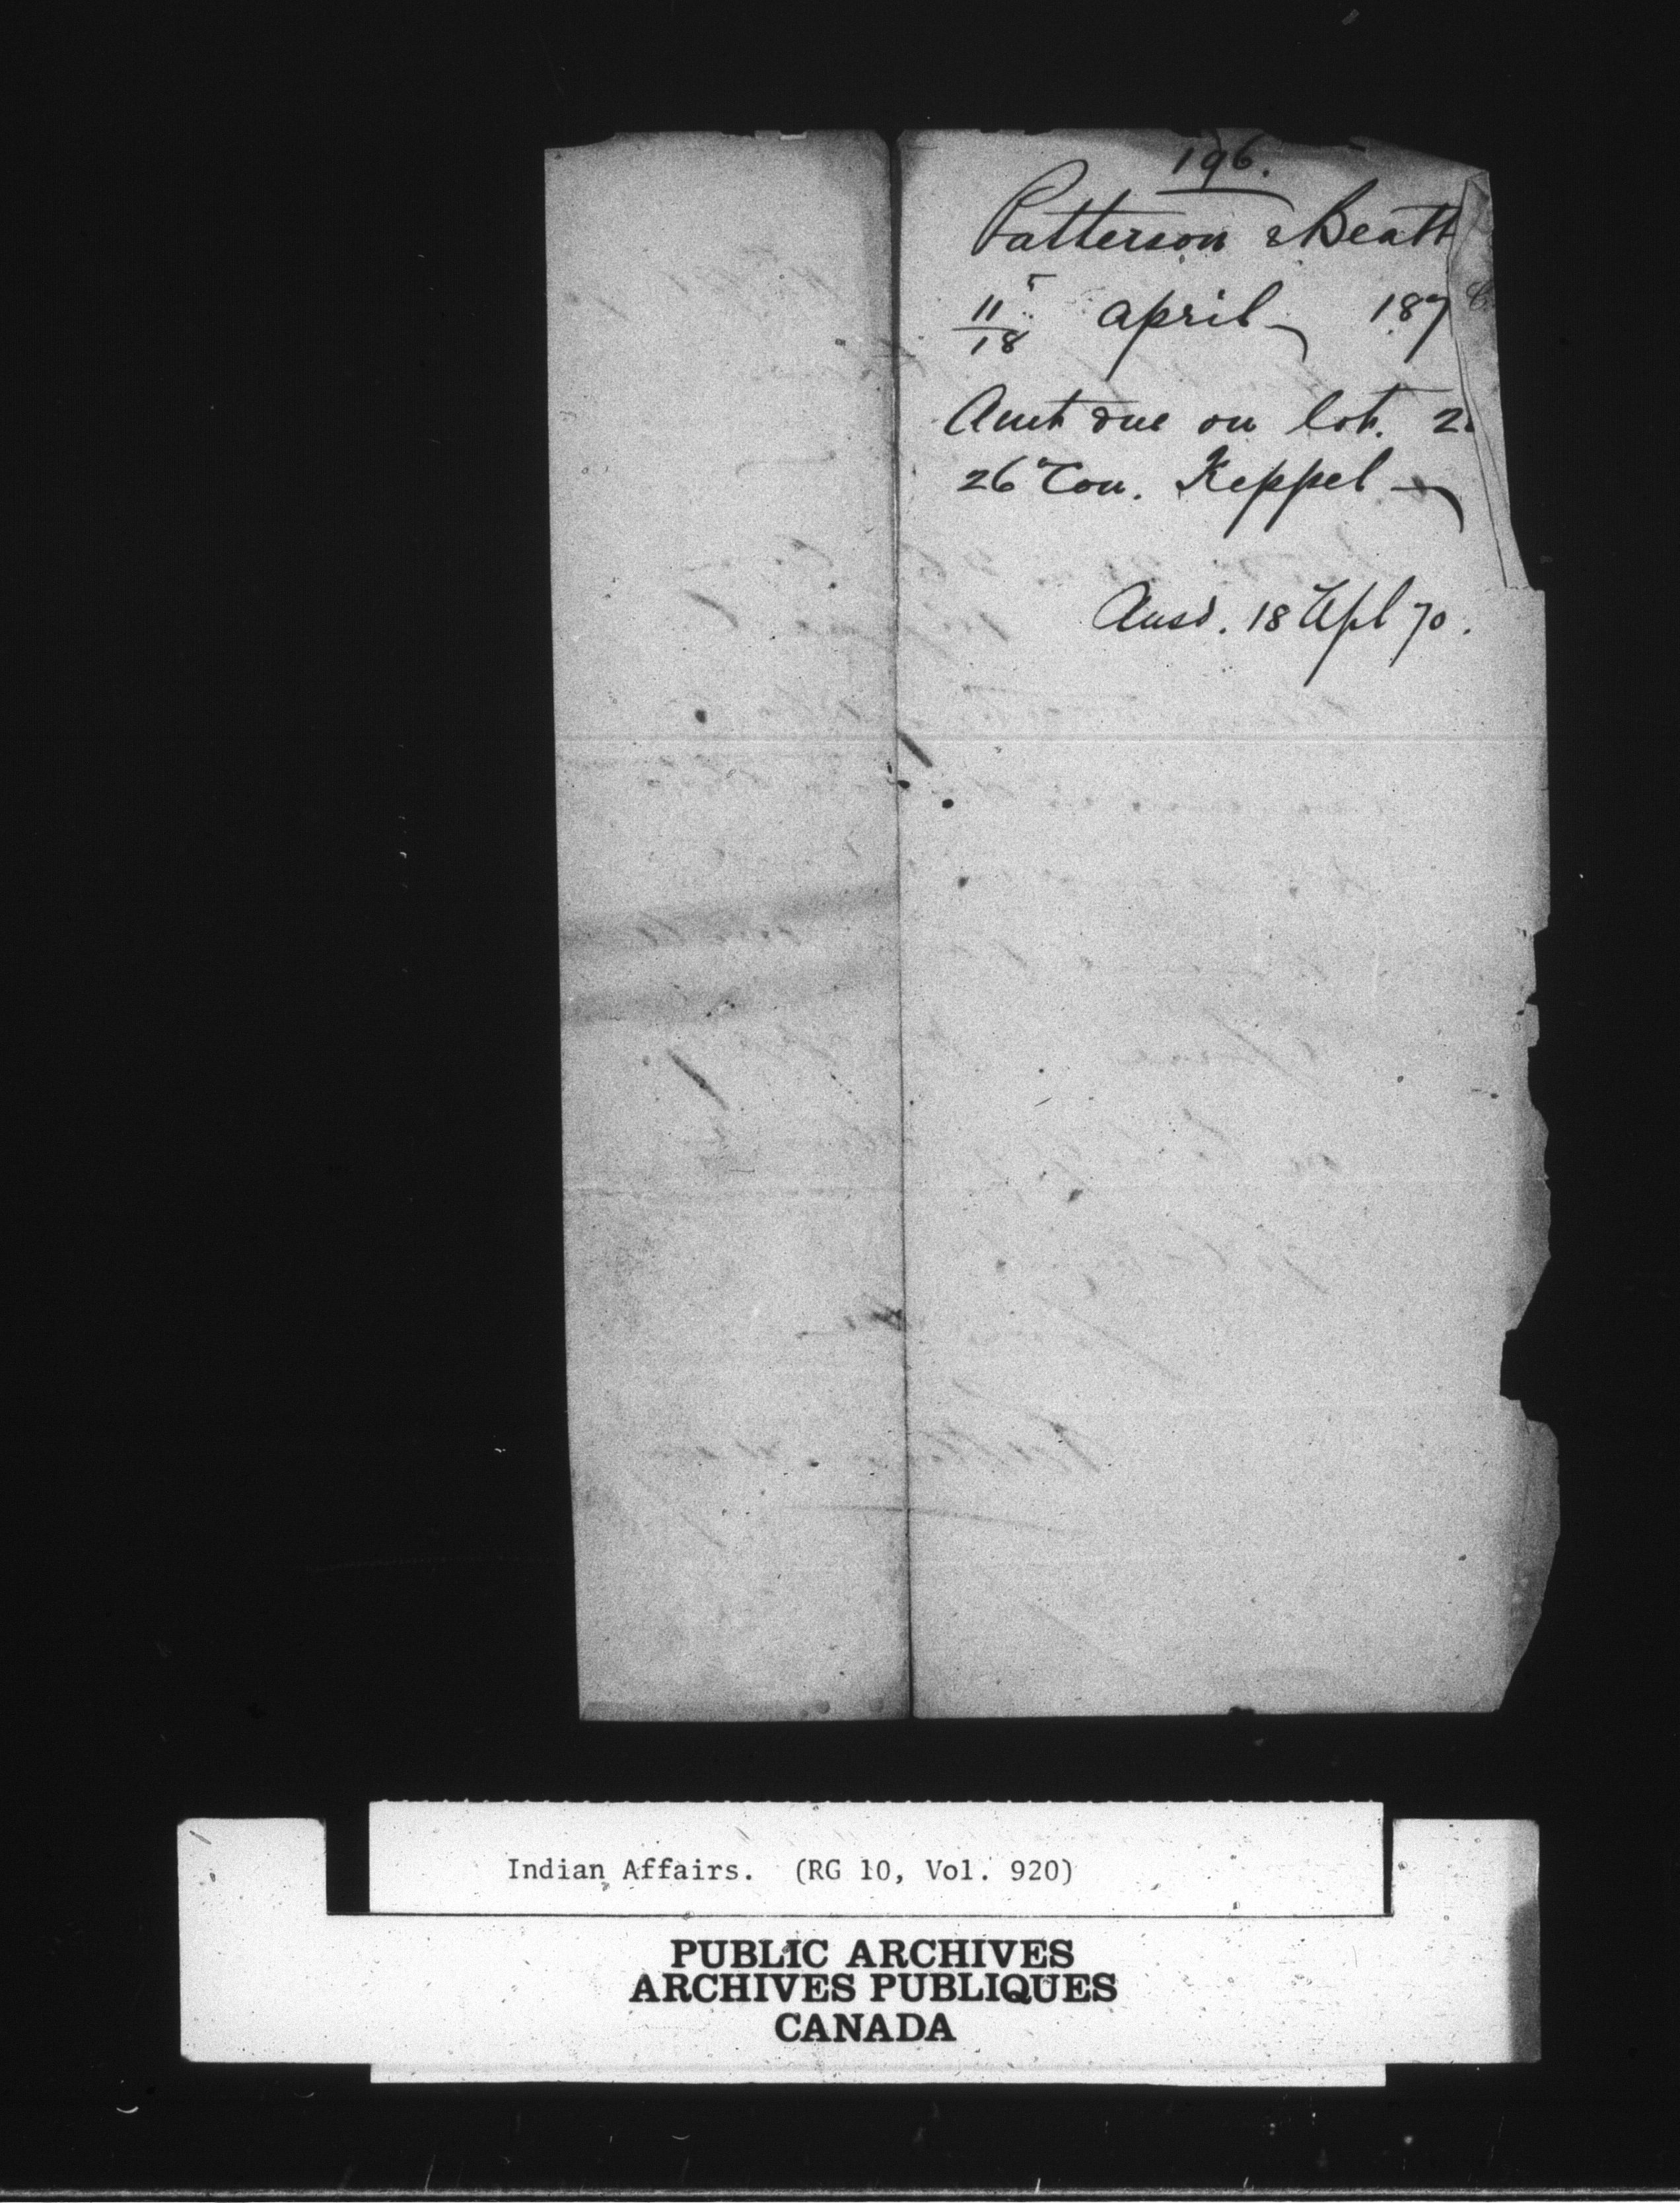 196.
Patterson & Beatt
11
18 April 187
Amt due on lot. 2
26 Con. Keppel
Ansd. 18 Apl 70.
Indian Affairs. (RG 10, Vol. 920)
PUBLIC ARCHIVES
ARCHIVES PUBLIQUES
CANADA